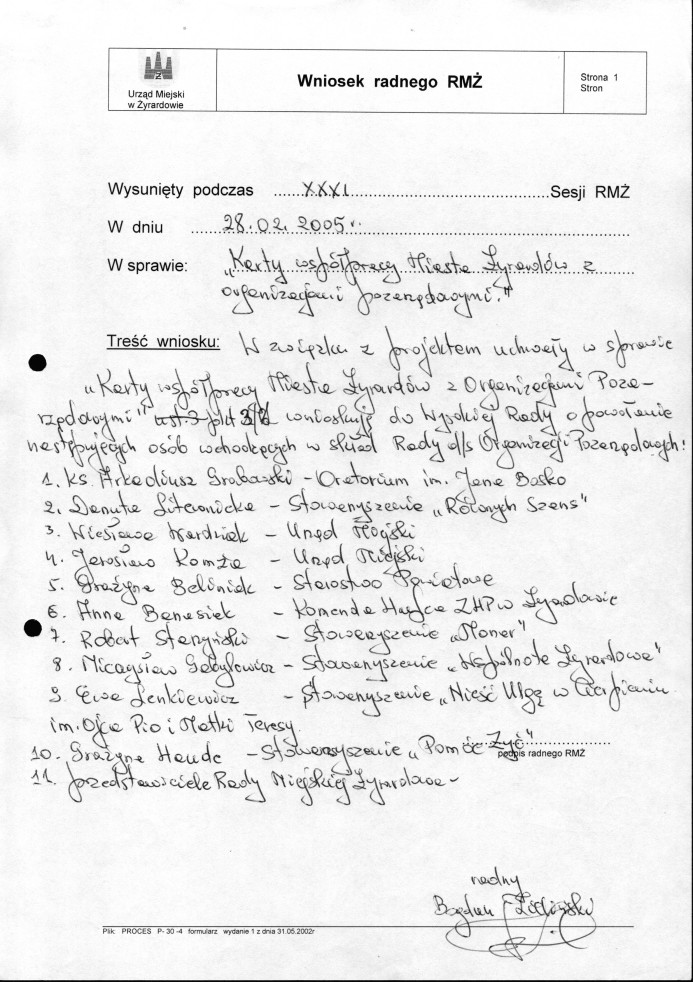 Urząd Miejski
w Żyrardowie
Wniosek radnego RMŻ
Strona 1
Stron
Wysunięty podczas XXXI Sesji RMŻ
W dniu 28.02.2005 r.
W sprawie: „Karty współpracy Miasta Żyrardów z
organizacjami pozarządowymi."
Treść wniosku: W związku z projektem uchwały w sprawie
„Karty współpracy Miasta Żyrardów z Organizacjami Poza-
rządowymi" wnioskuję do Wysokiej Rady o powołanie
następujących osób wchodzących w skład Rady d/s Organizacji Pozarządowych:
1. Ks. Arkadiusz - Oratorium im. Jana Bosko
2. Danuta - Stowarzyszenie „Równych Szans"
3. Wiesława - Urząd Miejski
4. Jarosław Komża - Urząd Miejski
5. Grażyna - Starostwo Powiatowe
6. Anna Banasiak - Komenda Hufca ZHP w Żyrardowie
7. Robert - Stowarzyszenie „Monar"
8. Mieczysław - Stowarzyszenie „Wspólnota Żyrardowa"
9. Ewa Lenkiewicz - Stowarzyszenie „Nieść Ulgę w Cierpieniu
im. Ojca Pio i Matki Teresy
10. Grażyna - Stowarzyszenie „Pomóc Żyć"
podpis radnego RMŻ
11. przedstawiciele Rady Miejskiej Żyrardowa -
radny
Bogdan
Plik: PROCES P- 30 -4 formularz wydanie 1 z dnia 31.05.2002r